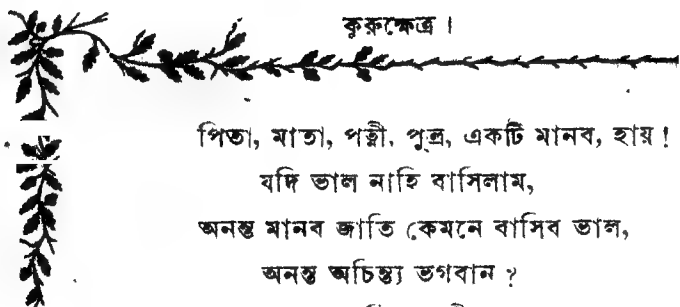 কুরুক্ষেত্র।
পিতা, মাতা, পত্নী, পুত্র, একটি মানব, হায়!
যদি ভাল নাহি বাসিলাম,
অনন্ত মানব জাতি কেমনে বাসিব ভাল,
অনন্ত অচিন্ত্য ভগবান?